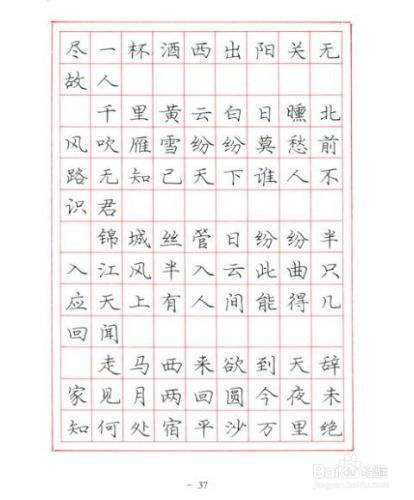 尽一杯酒西出阳关无
故人
千里黄云白日曛北
风吹雁雪纷纷莫愁前
路无知己天下谁人不
识君
锦城丝管日纷纷半
入江风半入云此曲只
应天上有人间能得几
回闻
走马西来欲到天辞
家见月两回圆今夜未
知何处宿平沙万里绝
- 37
Baidu 百度经验
jingyan.baidu.com